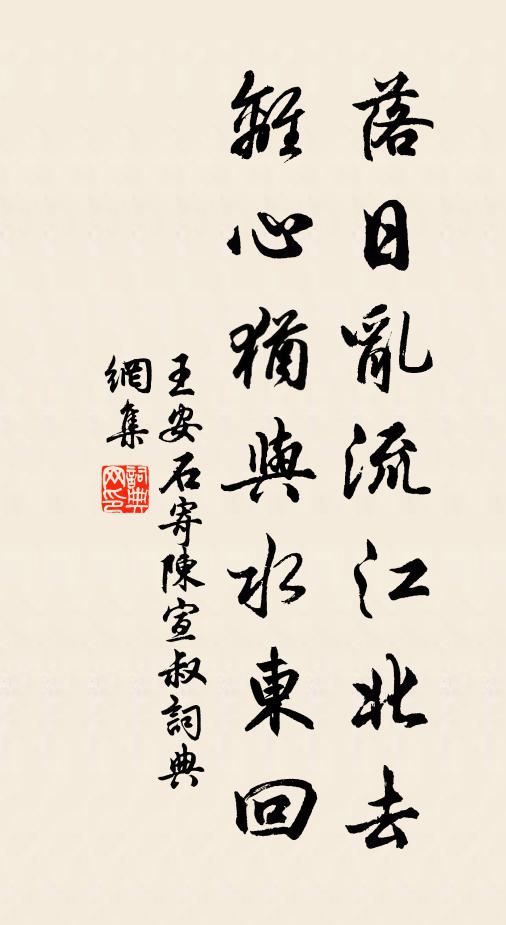 落日亂流江北去
離心猶與水東回
王安石寄陳宣叔詞典
網集
詞典網印